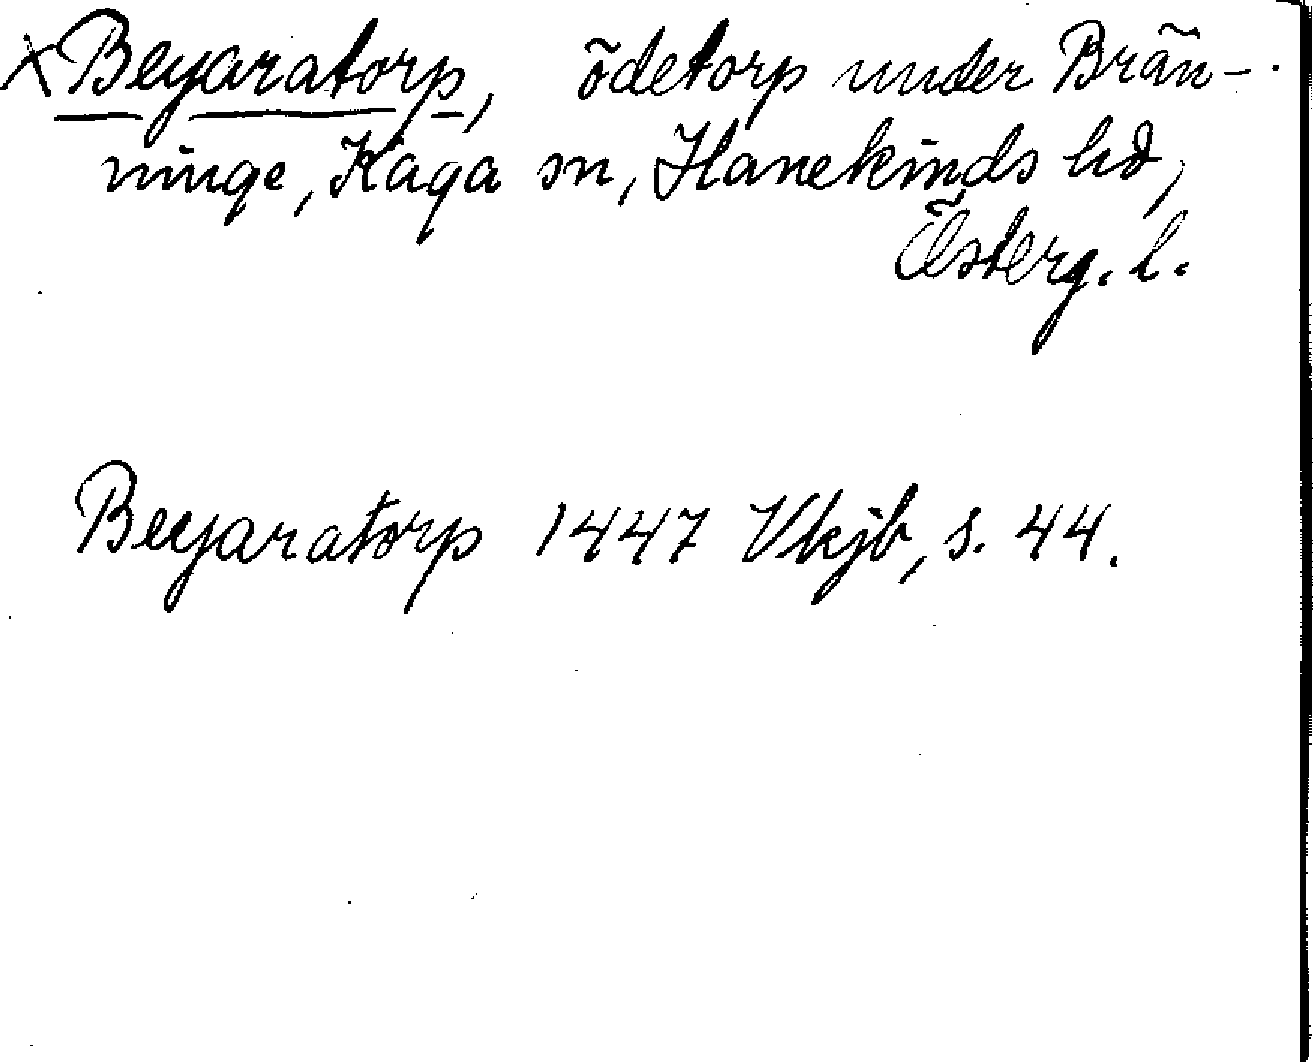 ×Beyaratorp, ödetorp under Brän-
ninge, Kaga sn, Hanekinds hd,
Österg. l.
Beyaratorp 1447 Vkjb, s. 44.